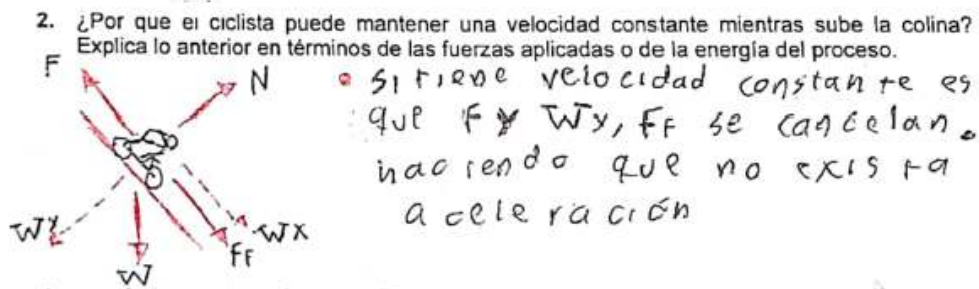 2. ¿Por que el ciclista puede mantener una velocidad constante mientras sube la colina?
Explica lo anterior en términos de las fuerzas aplicadas o de la energía del proceso.
F
N
si tiene velocidad constante es
que F y Wy, FF se cancelan.
haciendo que no exista
aceleración
Wy
Wx
FF
W